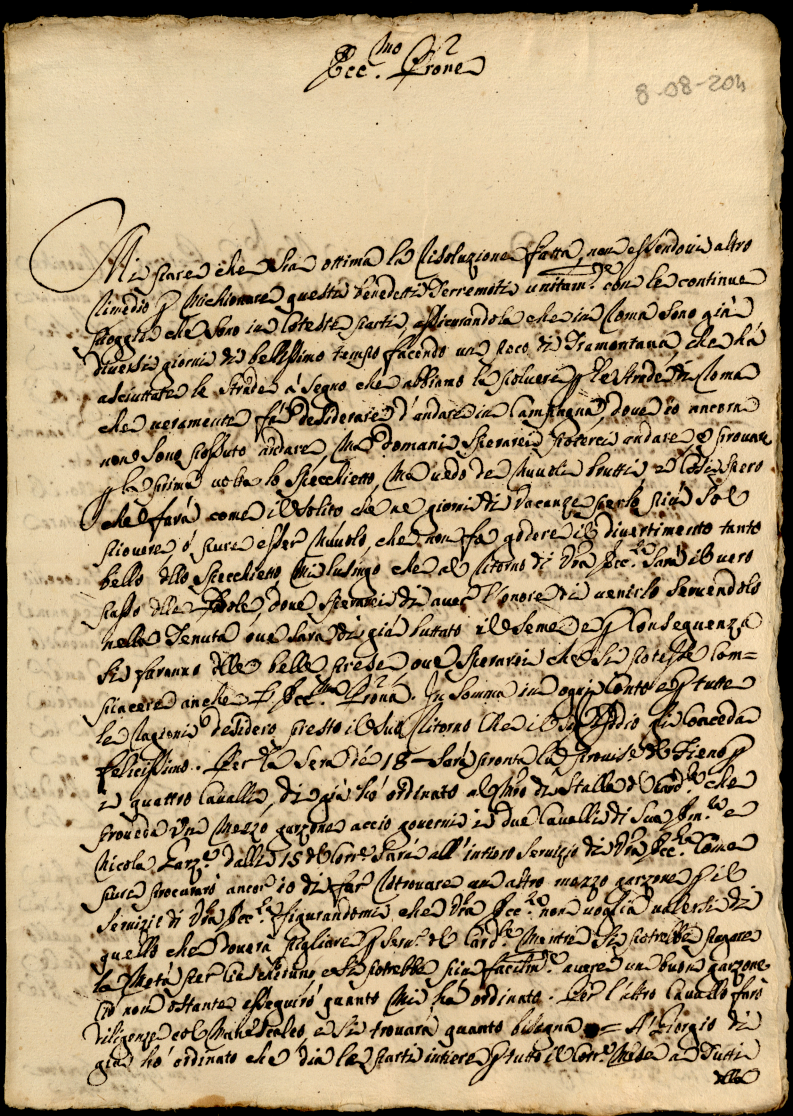 Ecc.mo Prone
8-08-204
Mi pare che sia ottima la risoluzione fatta, non essendovi altro
rimedio p questi benedetti Terremoti unitam.te con le continue
pioggie che sono in coteste parti, assicurandola che in Roma sono già
diversi giorni di bellissimo tempo facendo un poco di Tramontana, che hà
asciuttate le strade à segno che abbiamo la polvere p le strade di Roma
che veramente fà desiderare d'andare in Campagna, dove io ancora
non sono possuto andare, Mà domani sperarei poterci andare, e provare
p la prima volta lo Specchietto, Ma vedo de Nuvoli brutti, e così spero
che farà come il solito che ne giorni di vacanze per lo più suol
piovere, ò pure esser Nuvolo, che non fà godere il divertimento tanto
bello dello Specchietto, Mi lusingo che al ritorno di Vra Ecc.za sarà il vero
passo delle, dove sperarei di aver l'onore di venirlo servendolo
nella Tenuta ove sarà di già buttato il seme, e p conseguenza
si faranno delle belle prese, ove sperarei che si potesse com=
piacere anche l'Ecc.ma Prona. In somma in ogni conto, e p tutte
le ragioni desidero presto il suo ritorno che il Sig.e Iddio gli conceda
felicissimo. Per la sera de 18 sarà pronta la provista del Fieno p
i quattro Cavalli, di già hò ordinato al Mro di Stalla del Card.le che
proveda un Mezzo garzone acciò governi i due Cavalli di Sua Em.za e
Nicola Garz.e dalli 15 del Corr.e sarà all'intiero servizio di Vra Ecc.za come
pure procurarò ancor io di far ritrovare un altro mezzo garzone p il
servizio di Vra Ecc.za figurandomi che Vra Ecc.za non voglia valersi di
quello che dovrà pigliare p serv.o del Card.le Mentre si potrebbe pagare
la Metà per ciascheduno, e si potrebbe più facilm.te avere un buon garzone
Ciò non ostante esseguirò quanto Mi hà ordinato. Per l'altro Cavallo farò
diligenze col Maniscalco e si trovarà quanto bisogna = A Giorgio di
già hò ordinato che dia le parti intiere p tutto il Corr.e Mese a Tutti
della